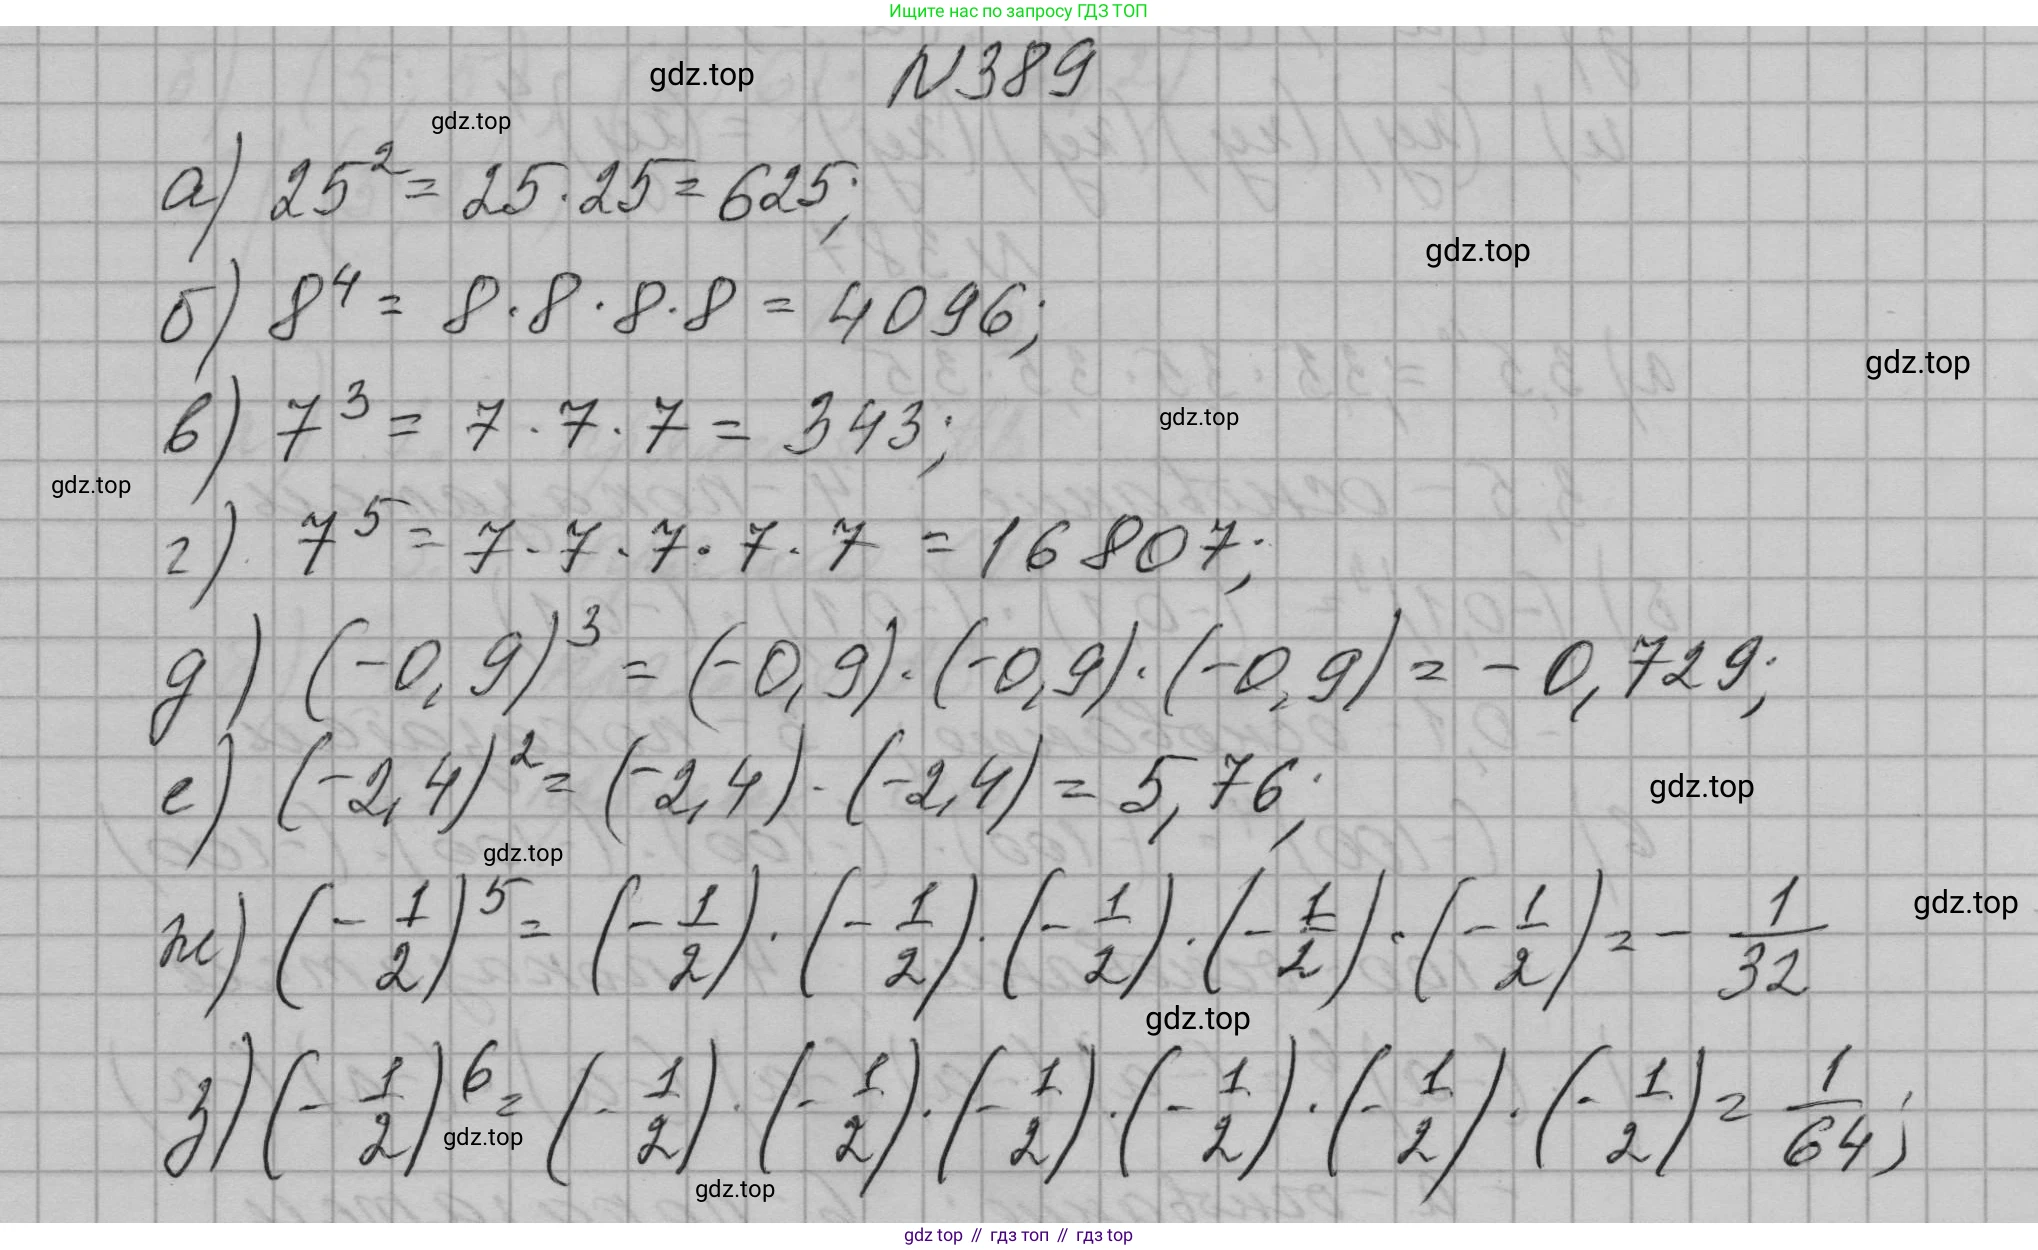 Ищите нас по запросу ГДЗ ТОП
gdz.top
N389
gdz.top
а) 25² = 25·25 = 625;
gdz.top
б) 8⁴ = 8·8·8·8 = 4096;
gdz.top
в) 7³ = 7·7·7 = 343;
gdz.top
gdz.top
г) 7⁵ = 7·7·7·7·7 = 16807;
д) (-0,9)³ = (-0,9)·(-0,9)·(-0,9) = -0,729;
е) (-2,4)² = (-2,4)·(-2,4) = 5,76;
gdz.top
gdz.top
ж) (-1/2)⁵ = (-1/2)·(-1/2)·(-1/2)·(-1/2)·(-1/2) = -1/32
gdz.top
gdz.top
з) (-1/2)⁶ = (-1/2)·(-1/2)·(-1/2)·(-1/2)·(-1/2)·(-1/2) = 1/64;
gdz.top
gdz.top
gdz top // гдз топ // гдз top